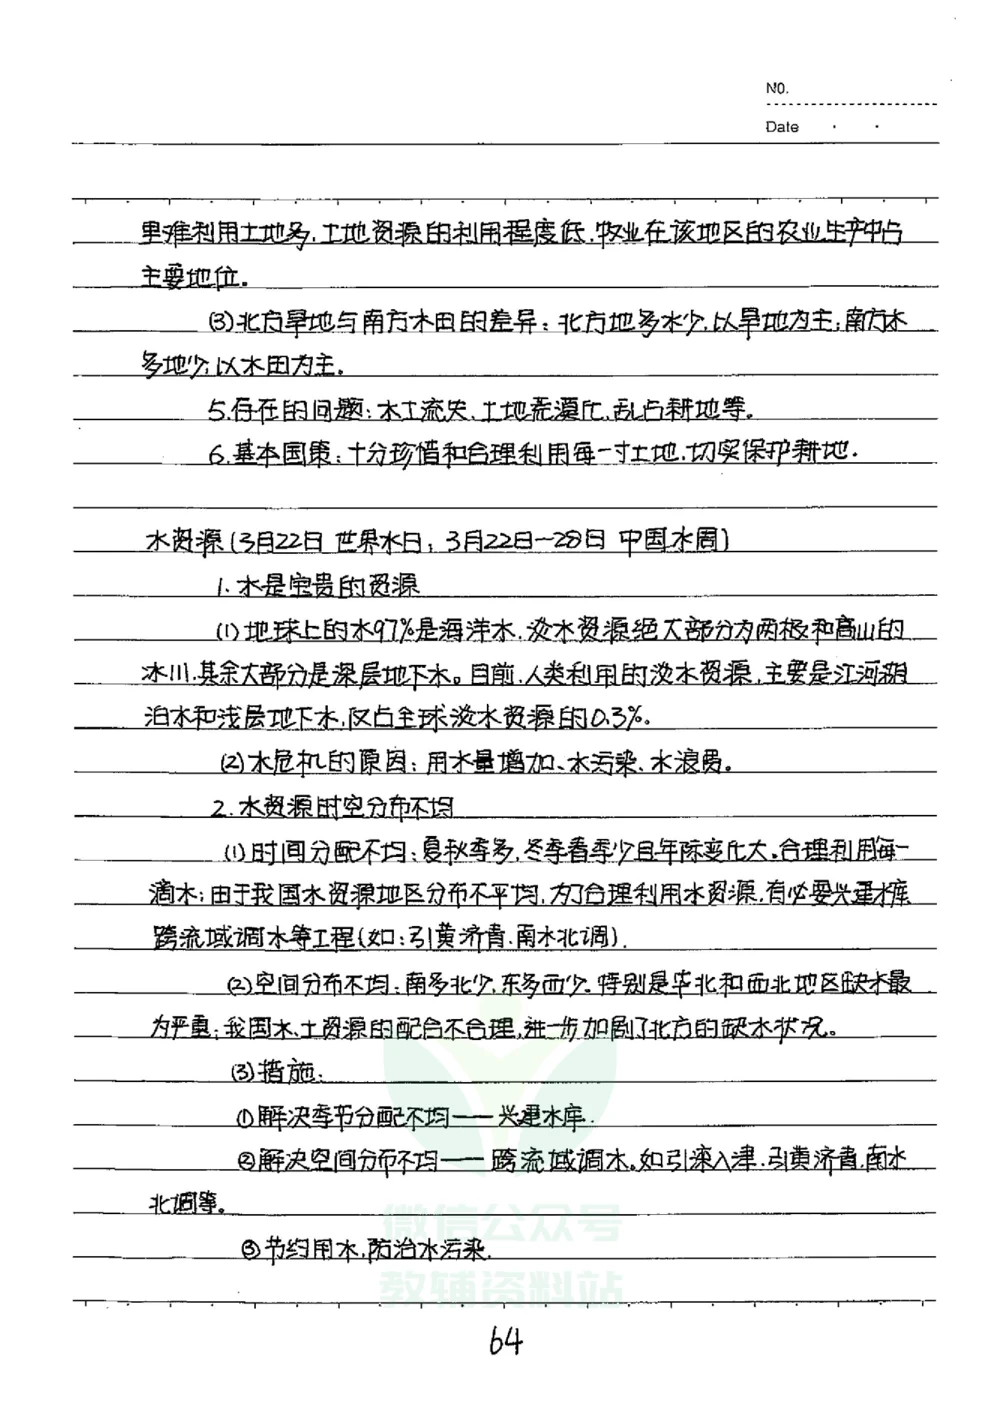 NO.
Date
里难利用土地多,土地资源的利用程度低,牧业在该地区的农业生产中占
主要地位。
(3)北方旱地与南方水田的差异:北方地多水少,以旱地为主;南方水
多地少,以水田为主。
5.存在的问题:水土流失、土地荒漠化、乱占耕地等。
6.基本国策:十分珍惜和合理利用每一寸土地,切实保护耕地.
水资源(3月22日 世界水日; 3月22日—28日 中国水周)
1.水是宝贵的资源
(1)地球上的水97%是海洋水,淡水资源绝大部分为两极和高山的
冰川,其余大部分是深层地下水。目前,人类利用的淡水资源,主要是江河湖
泊水和浅层地下水,仅占全球淡水资源的0.3%。
(2)水危机的原因:用水量增加、水污染、水浪费。
2.水资源时空分布不均
(1)时间分配不均:夏秋季多,冬季春季少且年际变化大。合理利用每一
滴水;由于我国水资源地区分布不平均,为了合理利用水资源,有必要兴建水库
跨流域调水等工程(如:引黄济青、南水北调).
(2)空间分布不均:南多北少,东多西少。特别是华北和西北地区缺水最
为严重;我国水、土资源的配合不合理,进一步加剧了北方的缺水状况。
(3)措施:
①解决季节分配不均——兴建水库.
②解决空间分布不均——跨流域调水。如引滦入津、引黄济青、南水
北调等。
③节约用水,防治水污染.
微信公众号
教辅资料站
64